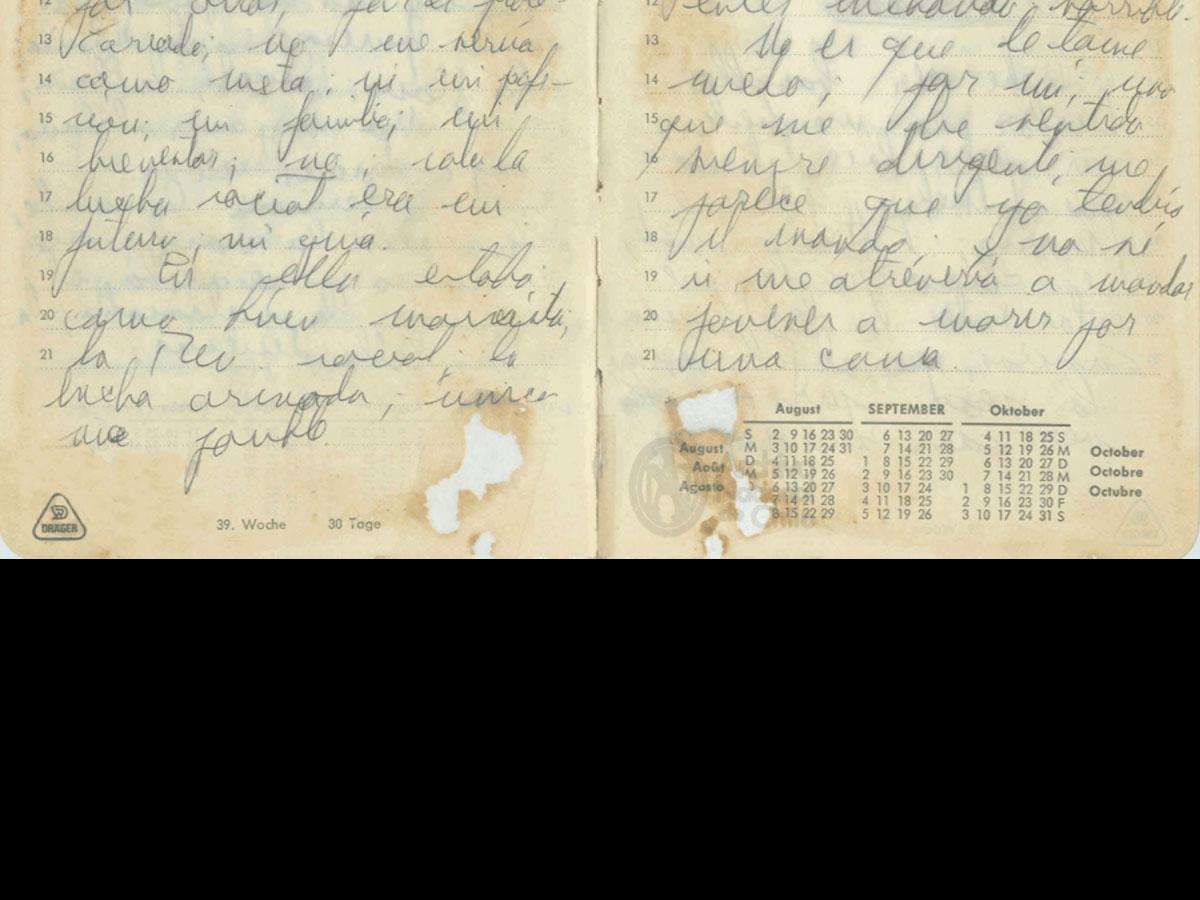 por
cariado; no me servía
como meta; ni mi profe-
sión; mi familia; mi
bienestar; no; solo la
lucha social era mi
futuro, mi guía.
En ella estaba
como buen marxista,
la Rev. social, la
lucha armada; única
que
DRÄGER
39. Woche 30 Tage
No es que le tome
miedo; por mi, yo
que me he sentido
siempre dirigente, me
parece que yo tendría
el mando. Y no sé
si me atrevería a mandar
jóvenes a morir por
una causa.
August SEPTEMBER Oktober
S 2 9 16 23 30 6 13 20 27 4 11 18 25 S
August M 3 10 17 24 31 7 14 21 28 5 12 19 26 M October
Août D 4 11 18 25 1 8 15 22 29 6 13 20 27 D Octobre
M 5 12 19 26 2 9 16 23 30 7 14 21 28 M
Agosto 6 13 20 27 3 10 17 24 1 8 15 22 29 D Octubre
7 14 21 28 4 11 18 25 2 9 16 23 30 F
8 15 22 29 5 12 19 26 3 10 17 24 31 S